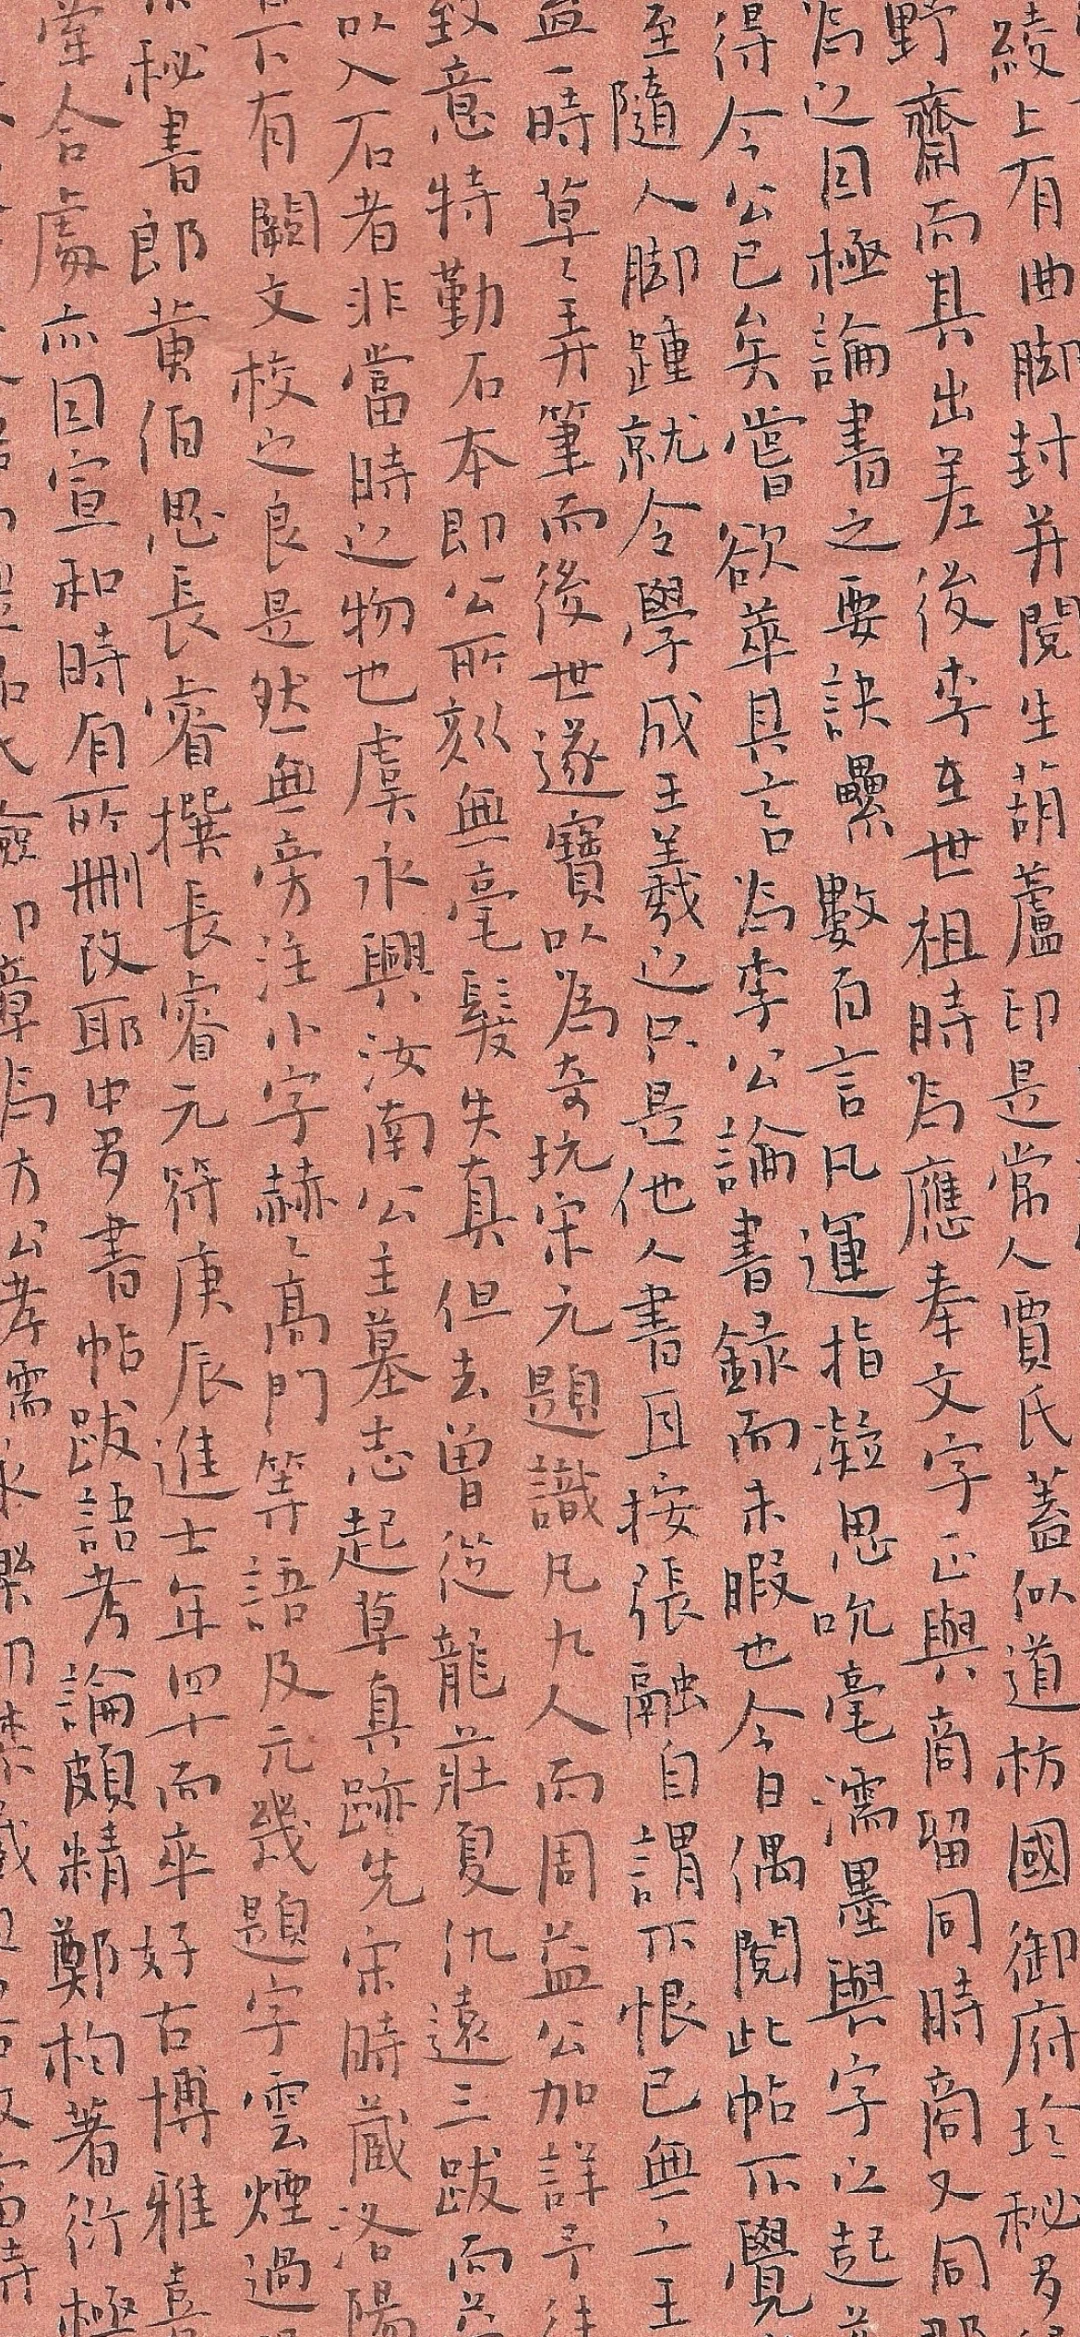 綾上有曲脚封并閱生葫蘆印是常人賈氏蓋似道枋國御府珍秘多
野齋而其出差後李在世祖時為應奉文字正與商留同時商又同
為之因極論書之要訣纍數百言凡運指凝思吮毫濡墨與字之起
得今公已矣嘗欲萃其言為李公論書錄而未暇也今日偶閱此帖不覺
至隨人脚踵就令學成王羲之只是他人書且按張融自謂不恨己無二王
益一時草〻弄筆而後世遂寶以為奇玩宋元題識凡九人而周益公加詳予
致意特勤石本即公所刻無毫髮失真但去曾從龍莊夏仇遠三跋而益
以入石者非當時之物也虞永興汝南公主墓志起草真跡先宋時蔵洛陽
下有闕文校之良是然無旁注小字赫〻高門等語及元幾題字雲煙過
秘書郎黄伯思長睿撰長睿元符庚辰進士年四十而卒好古博雅喜
當合處亦因宣和時有所刪改耶中多書帖跋語考論頗精鄭杓著衍極
印章為方公孝孺永樂初禁